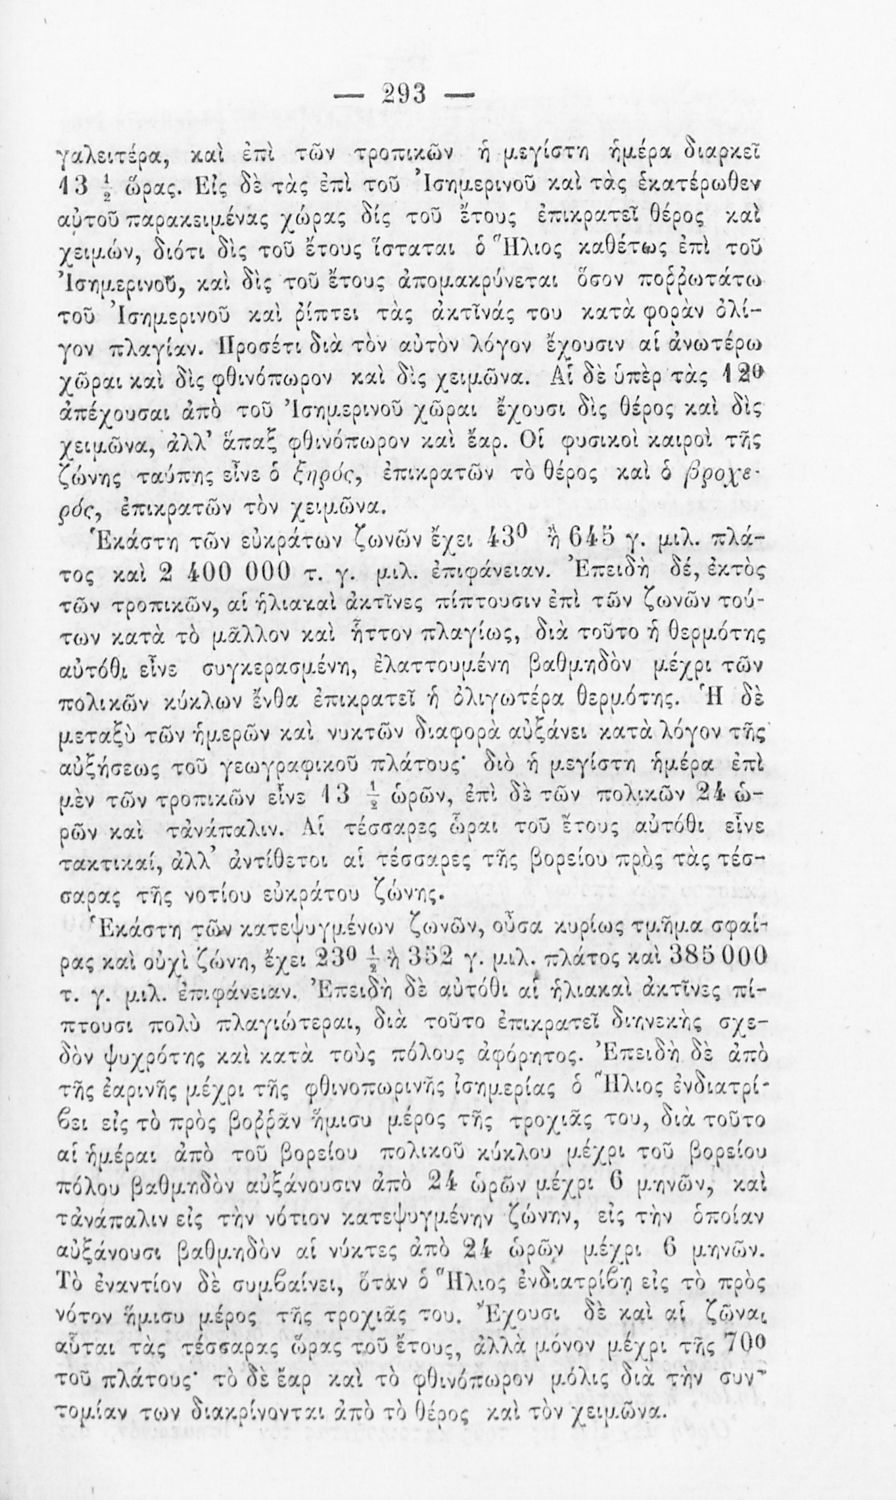 — 293 —
γαλειτέρα, καὶ ἐπὶ τῶν τροπικῶν ἡ μεγίστη ἡμέρα διαρκεῖ
13 ½ ὥρας. Εἰς δὲ τὰς ἐπὶ τοῦ Ἰσημερινοῦ καὶ τὰς ἑκατέρωθεν
αὐτοῦ παρακειμένας χώρας δίς τοῦ ἔτους ἐπικρατεῖ θέρος καὶ
χειμών, διότι δὶς τοῦ ἔτους ἵσταται ὁ Ἥλιος καθέτως ἐπὶ τοῦ
Ἰσημερινοῦ, καὶ δὶς τοῦ ἔτους ἀπομακρύνεται ὅσον ποῤῥωτάτω
τοῦ Ἰσημερινοῦ καὶ ῥίπτει τὰς ἀκτῖνάς του κατὰ φορὰν ὀλί-
γον πλαγίαν. Προσέτι διὰ τὸν αὐτὸν λόγον ἔχουσιν αἱ ἀνωτέρω
χῶραι καὶ δὶς φθινόπωρον καὶ δὶς χειμῶνα. Αἱ δὲ ὑπὲρ τὰς 12⁰
ἀπέχουσαι ἀπὸ τοῦ Ἰσημερινοῦ χῶραι ἔχουσι δὶς θέρος καὶ δὶς
χειμῶνα, ἀλλ’ ἅπαξ φθινόπωρον καὶ ἔαρ. Οἱ φυσικοὶ καιροὶ τῆς
ζώνης ταύτης εἶνε ὁ ξηρός, ἐπικρατῶν τὸ θέρος καὶ ὁ βροχε-
ρός, ἐπικρατῶν τὸν χειμῶνα.
Ἑκάστη τῶν εὐκράτων ζωνῶν ἔχει 43⁰ ἢ 645 γ. μιλ. πλά-
τος καὶ 2 400 000 τ. γ. μιλ. ἐπιφάνειαν. Ἐπειδὴ δέ, ἐκτὸς
τῶν τροπικῶν, αἱ ἡλιακαὶ ἀκτῖνες πίπτουσιν ἐπὶ τῶν ζωνῶν τού-
των κατὰ τὸ μᾶλλον καὶ ἧττον πλαγίως, διὰ τοῦτο ἡ θερμότης
αὐτόθι εἶνε συγκερασμένη, ἐλαττουμένη βαθμηδὸν μέχρι τῶν
πολικῶν κύκλων ἔνθα ἐπικρατεῖ ἡ ὀλιγωτέρα θερμότης. Ἡ δὲ
μεταξὺ τῶν ἡμερῶν καὶ νυκτῶν διαφορὰ αὐξάνει κατὰ λόγον τῆς
αὐξήσεως τοῦ γεωγραφικοῦ πλάτους· διὸ ἡ μεγίστη ἡμέρα ἐπὶ
μὲν τῶν τροπικῶν εἶνε 13 ½ ὡρῶν, ἐπὶ δὲ τῶν πολικῶν 24 ὡ-
ρῶν καὶ τἀνάπαλιν. Αἱ τέσσαρες ὧραι τοῦ ἔτους αὐτόθι εἶνε
τακτικαί, ἀλλ’ ἀντίθετοι αἱ τέσσαρες τῆς βορείου πρὸς τὰς τέσ-
σαρας τῆς νοτίου εὐκράτου ζώνης.
Ἑκάστη τῶν κατεψυγμένων ζωνῶν, οὖσα κυρίως τμῆμα σφαί-
ρας καὶ οὐχὶ ζώνη, ἔχει 23⁰ ½ ἢ 352 γ. μιλ. πλάτος καὶ 385 000
τ. γ. μιλ. ἐπιφάνειαν. Ἐπειδὴ δὲ αὐτόθι αἱ ἡλιακαὶ ἀκτῖνες πί-
πτουσι πολὺ πλαγιώτεραι, διὰ τοῦτο ἐπικρατεῖ διηνεκὴς σχε-
δὸν ψυχρότης καὶ κατὰ τοὺς πόλους ἀφόρητος. Ἐπειδὴ δὲ ἀπὸ
τῆς ἐαρινῆς μέχρι τῆς φθινοπωρινῆς ἰσημερίας ὁ Ἥλιος ἐνδιατρί-
βει εἰς τὸ πρὸς βοῤῥᾶν ἥμισυ μέρος τῆς τροχιᾶς του, διὰ τοῦτο
αἱ ἡμέραι ἀπὸ τοῦ βορείου πολικοῦ κύκλου μέχρι τοῦ βορείου
πόλου βαθμηδὸν αὐξάνουσιν ἀπὸ 24 ὡρῶν μέχρι 6 μηνῶν, καὶ
τἀνάπαλιν εἰς τὴν νότιον κατεψυγμένην ζώνην, εἰς τὴν ὁποίαν
αὐξάνουσι βαθμηδὸν αἱ νύκτες ἀπὸ 24 ὡρῶν μέχρι 6 μηνῶν.
Τὸ ἐναντίον δὲ συμβαίνει, ὅταν ὁ Ἥλιος ἐνδιατρίβῃ εἰς τὸ πρὸς
νότον ἥμισυ μέρος τῆς τροχιᾶς του. Ἔχουσι δὲ καὶ αἱ ζῶναι
αὗται τὰς τέσσαρας ὥρας τοῦ ἔτους, ἀλλὰ μόνον μέχρι τῆς 70⁰
τοῦ πλάτους· τὸ δὲ ἔαρ καὶ τὸ φθινόπωρον μόλις διὰ τὴν συν-
τομίαν των διακρίνονται ἀπὸ τὸ θέρος καὶ τὸν χειμῶνα.